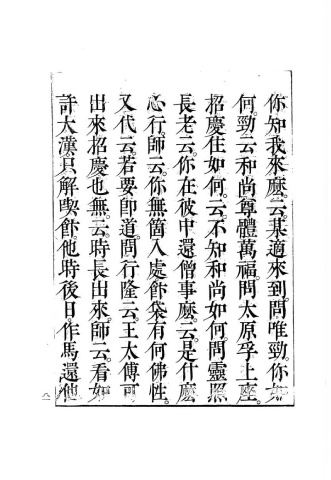 你知我來麽。云。某適來到。問唯勁。你如
何。勁云。和尚尊體萬福。問太原孚上座。
招慶住如何。云。不知和尚如何。問靈照
長老云。你在彼中還僧事麽。云。是什麽
心行。師云。你無箇入處。飰袋有何佛性。
又代云。若要卽道。問行隆云。王太傅可
出來招慶也無。云。時長出來。師云。看如
許大漢。只解喫飰。他時後日。作馬還他